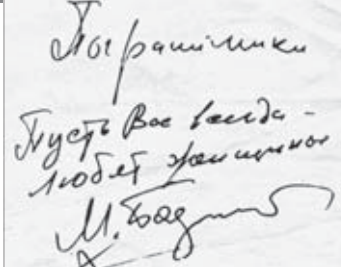 Пограничники
Пусть Вас всегда -
любят женщины
М.